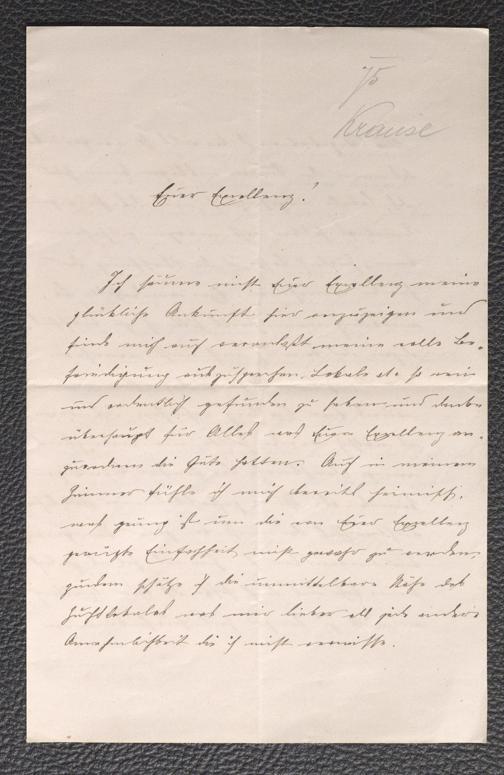 75
Krause
Euer Exzellenz!
Ich säume nicht Euer Exzellenz meine
glückliche Ankunft hier anzuzeigen und
finde mich auch veranlaßt meine volle Be-
friedigung auszusprechen, Lokale etc so rein
und ordentlich gefunden zu haben und danke
überhaupt für Alles was Euer Exzellenz an-
zuordnen die Güte hatten. Auch in meinem
Zimmer fühle ich mich bereits heimisch,
was genug ist um die von Euer Exzellenz
Einfachheit nicht gewahr zu werden
zudem schätze ich die unmittelbare Nähe des
was mir lieber als jede andere
Annehmlichkeit die ich nicht vermisse.